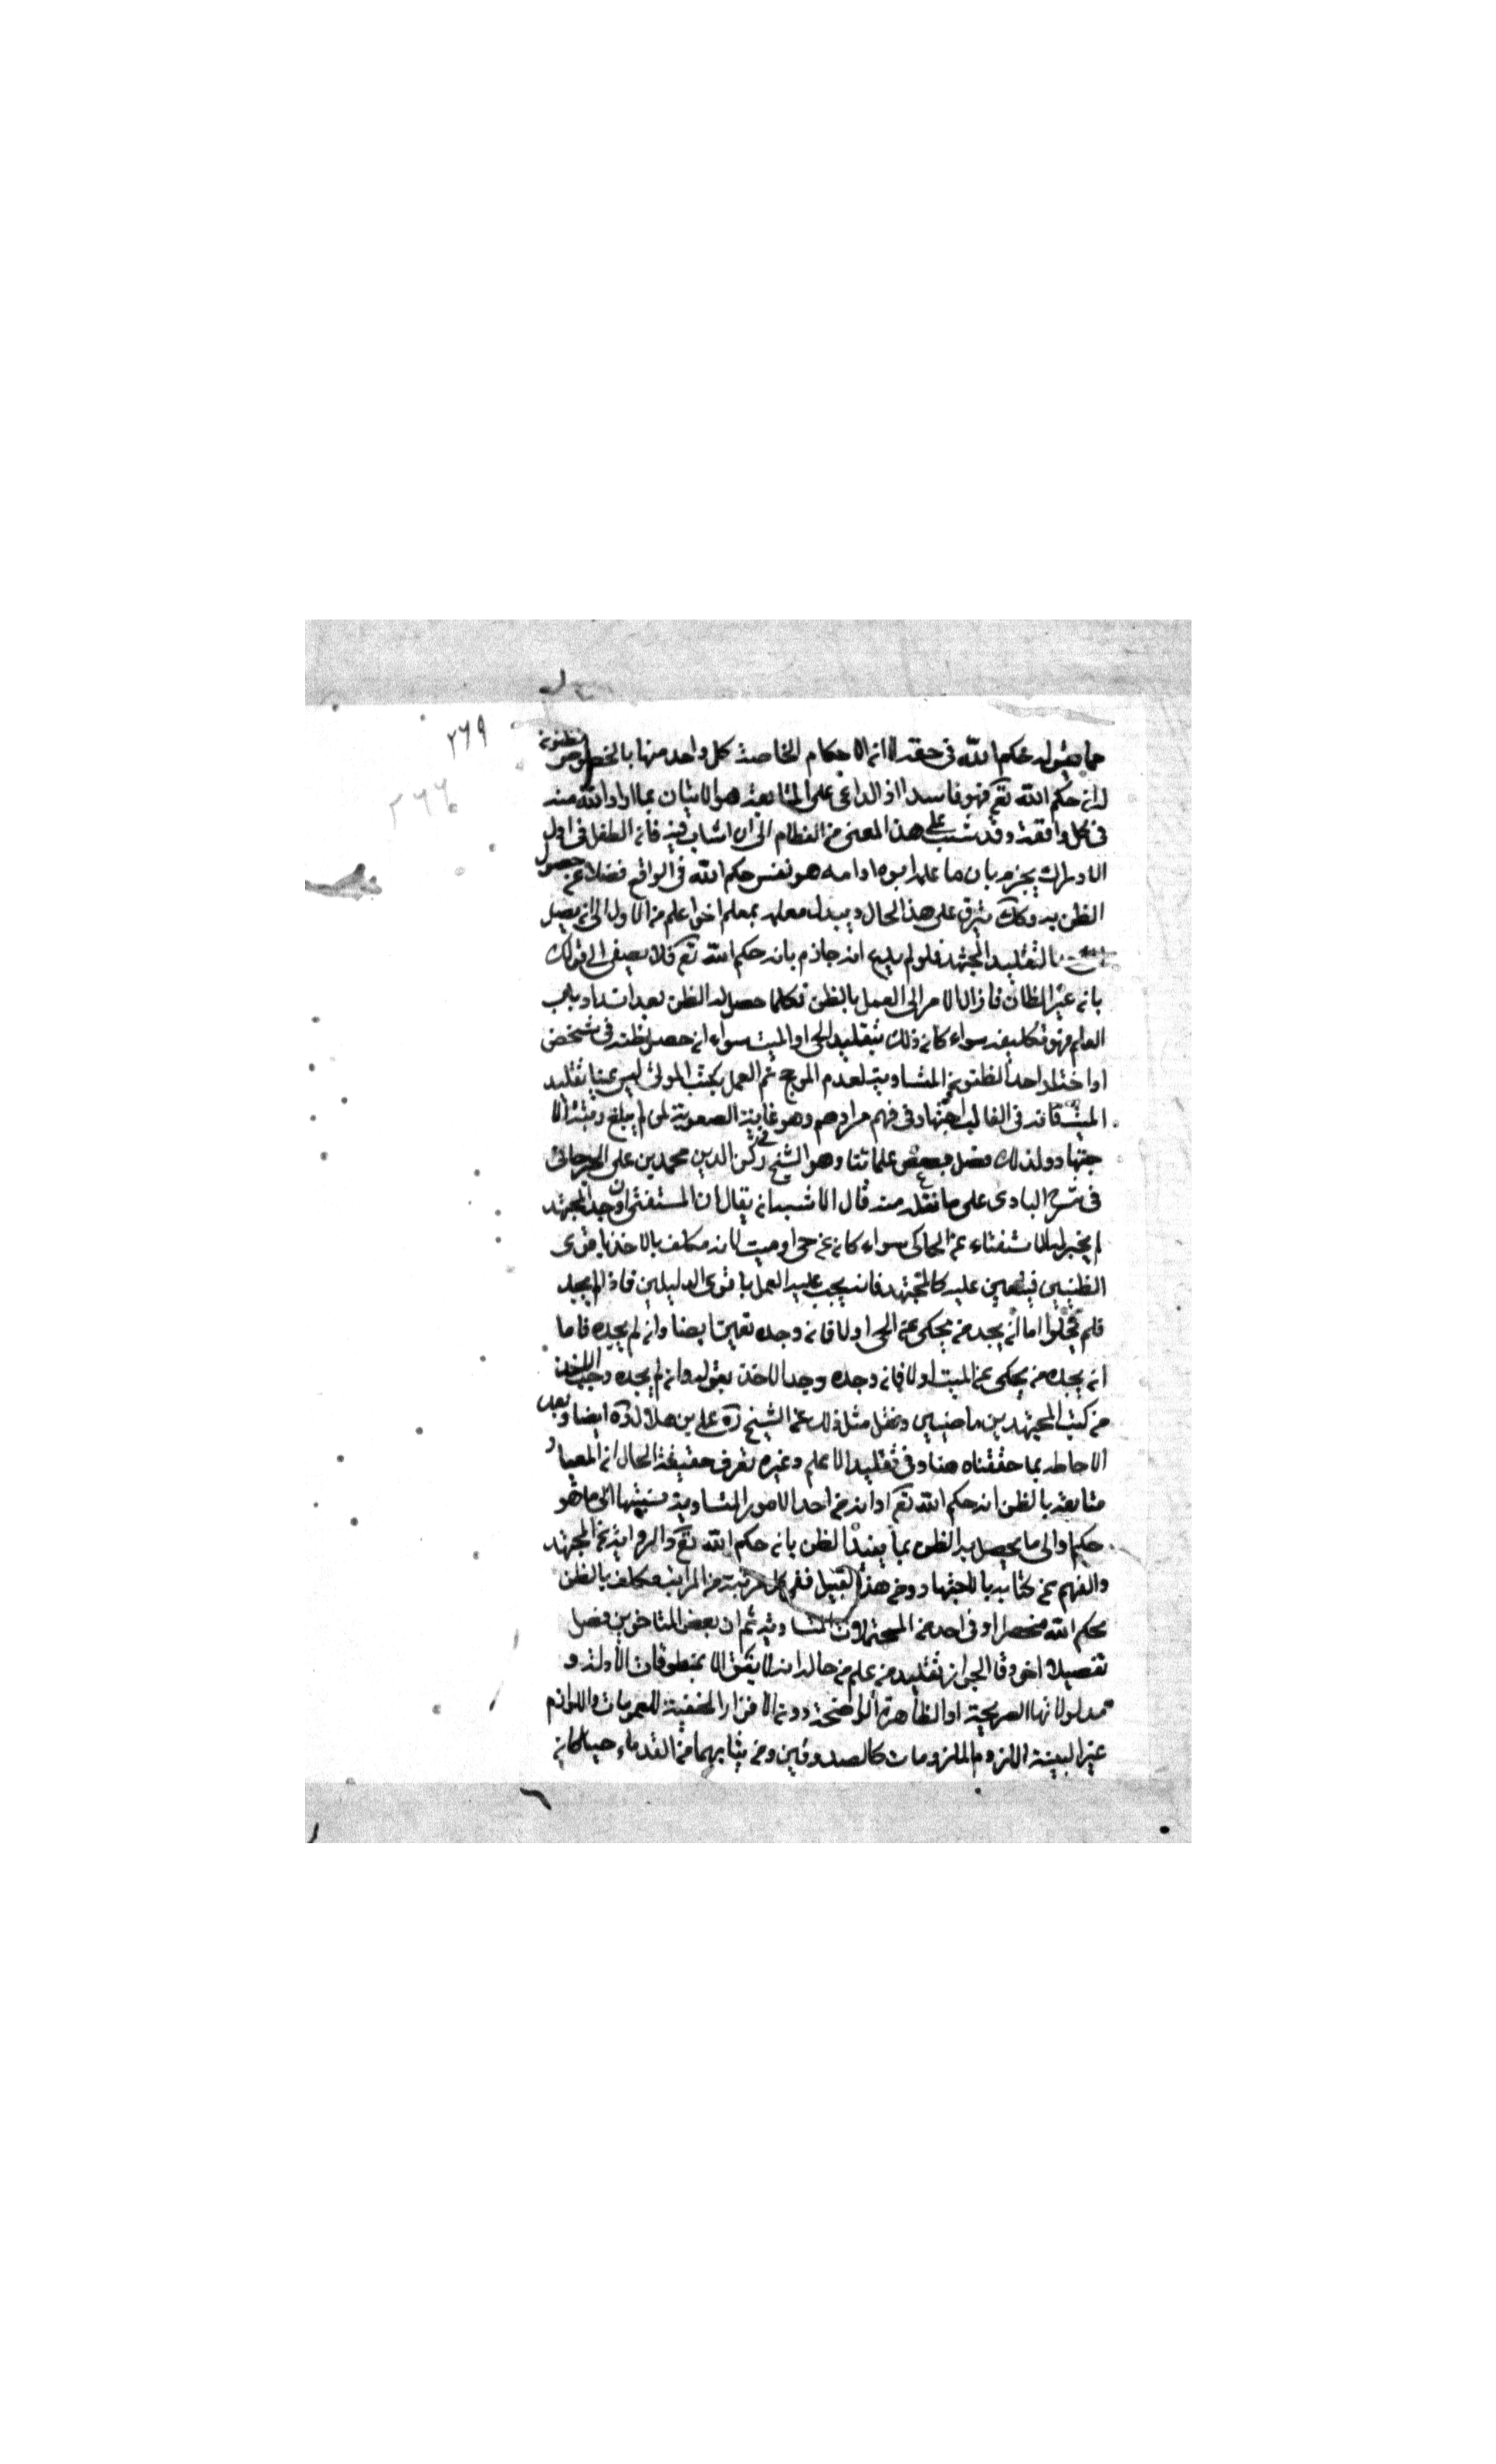 ٣٦٩
٢٦٦
مما يقوله حكم الله في حقه لا ان الاحكام الخاصة كل واحد منها بالخصوص مظنونه
له انه حكم الله تع فهو فاسد اذ الداعي على المتابعة هو الاتيان بما اراد الله منه
في كل واقعة وقد شب على هذا المعنى من الفطام الى ان اشاب فيه فانه الطفل في اول
الادراك يجزم بان ما علمه ابوه او امه هو نفس حكم الله في الواقع فضلا عن حصول
الظن به وكك يترقى على هذا الحال ويبدل معلمه بمعلم اخر اعلم من الاول الى ان يصل
بالتقليد المجتهد فلو لم انه جازم بانه حكم الله تع فلا الى قولك
بانه غير الظان فاذا الامر الى العمل بالظن فكلما حصل له الظن بعد انسداد باب
العلم فهو تكليفه سواء كان ذلك بتقليد الحي او الميت سواء انحصر ظنه في شخص
او اختار احد المظنونين المتساويين لعدم المرجح ثم العمل بكتب الموتى ليس عينا تقليد
الميت فانه في الغالب اجتهاد في فهم مرادهم وهو غاية الصعوبة لمن لم يبلغ رتبة الا
جتهاد ولذلك فصل بعض علمائنا وهو الشيخ ركن الدين محمد بن علي الجرجاني
في شرح المبادي على ما نقل منه قال الاشبه ان يقال ان المستفتي ان وجد المجتهد
لم يجز له الاستفتاء عن الحاكي سواء كان عن حي او ميت لانه مكلف بالاخذ باقوى
الظنين فيتعين عليه كالمجتهد فانه يجب عليه العمل باقوى الدليلين فاذا لم يجد
فلم يخلوا اما ان يجد من يحكي عن الحي اولا فان وجده تعين ايضا وان لم يجده فاما
ان يجده من يحكي عن الميت اولا فان وجده وجب الاخذ بقوله وان لم يجده وجب الاخذ
من كتب المجتهدين ماضيين ونقل مثل ذلك عن الشيخ علي بن هلال ره ايضا وبعد
الاحاطة بما حققناه هنا وفي تقليد الاعلم وغيره تعرف حقيقة الحال ان المعيار
متابعة بالظن انه حكم الله تع او انه من احد الامور المتساوية نسبتها الى ما هو
حكم والى ما يحصل به الظن بما يفيد الظن بانه حكم الله تع والرواية عن المجتهد
والفهم عن كتابه بالاجتهاد ومن هذا القبيل ففي كل مرتبة من المراتب مكلف بالظن
بحكم الله منحصرا او في احد من المحتملات المتساوية ثم ان بعض المتاخرين فصل
تفصيلا اخر وقال بجواز تقليد من علم من حاله انه لا يفتي الا بمنطوقات الادلة و
مدلولاتها الصريحة او الظاهرة الواضحة دون الافراد الخفية للعمومات واللوازم
غير البينة اللزوم للملزومات كالصدوقين ومن يشابههما من القدماء حيا كان